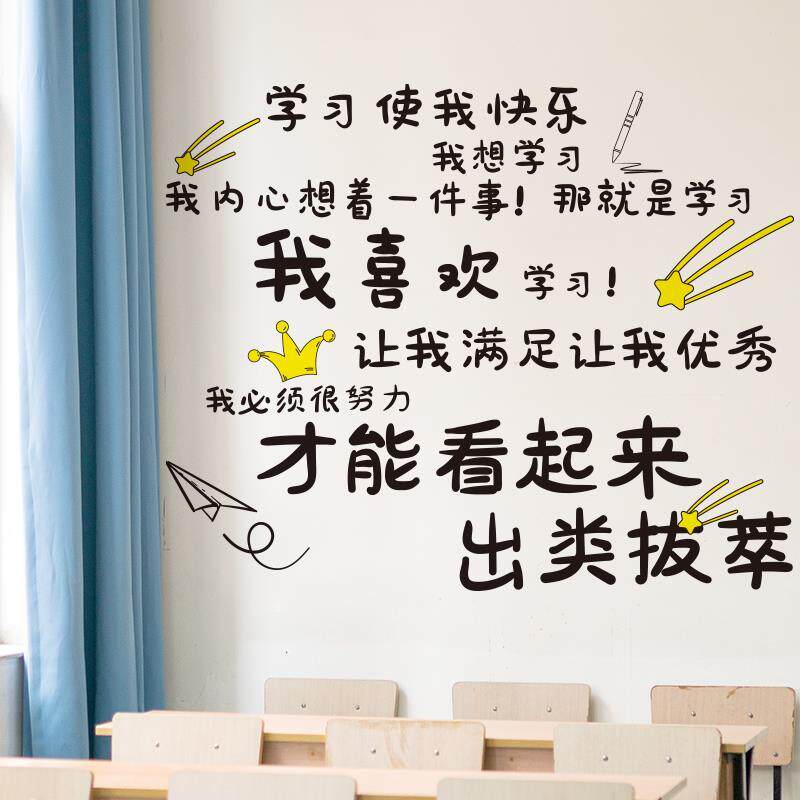 学习使我快乐
我想学习
我内心想着一件事！那就是学习
我喜欢学习！
让我满足让我优秀
我必须很努力
才能看起来
出类拔萃